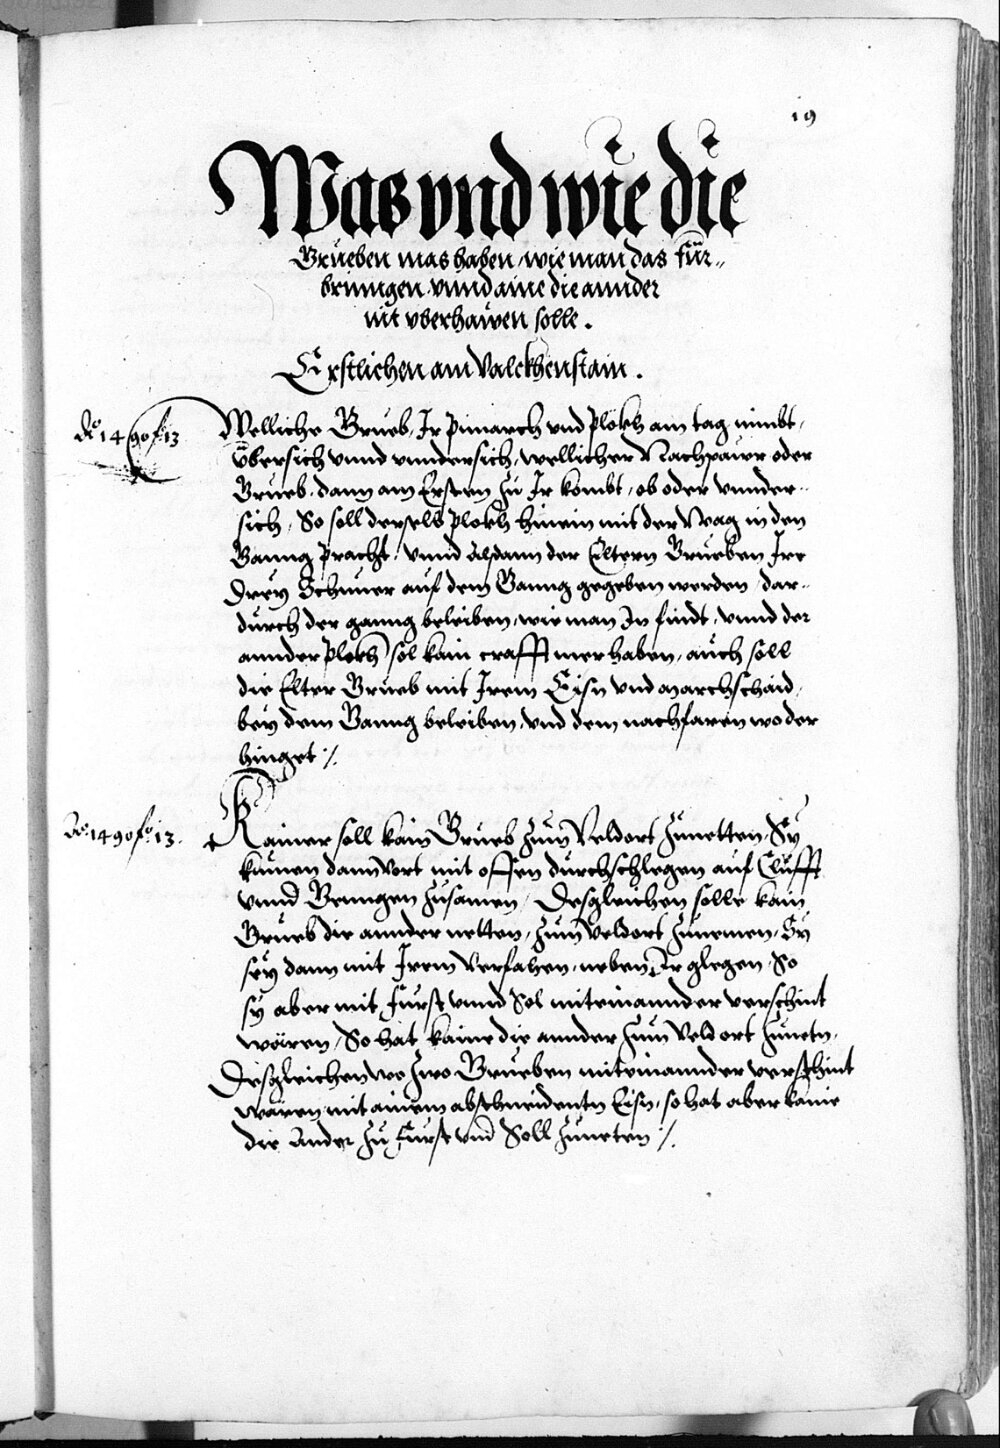 19
Was vnd wie die
Grueben mas haben, wie man das für-
bringen vnnd aine die annder
nit vberhawen solle.
Erstlichen am Valckhenstain.
Ao 1490 fo 13
Welliche Grueb, Ir pimarch vnd plökh am tag nimbt,
vbersich vnnd vnndersich, wellicher Nachpawr oder
Grueb, dann am Ersten zu Ir kombt, ob oder vnnder-
sich, So soll derselb plokh hinein mit der Wag in den
Ganng pracht, vnnd alsdann der Eltern Grueben Ire
Drey Schnuer auf dem Ganng gegeben werden, dar-
durch der ganng beleiben, wie man In findt, vnnd der
annder plokh sol kain crafft mer haben, auch soll
die Elter Grueb mit Irem Eisn vnd marchschaid,
bey dem Ganng beleiben, vnd dem nachfaren wo der
hinget ./.
Ao 1490 fo 13.
Kainer soll kain Grueb zum Veldort zunetten, Sy
kumen dann vort mit offen durchschlegen auf Clufft
vnnd Genngen zusamen, Desgleichen solle kain
Grueb die annder netten, zum Veldort zunemen, Sy
sey dann mit Irem Verfahen, neben Ir glegen, So
sy aber mit Furst vnnd Sol miteinannder verschint
wären, So hat kaine die annder zum Veldort zunetn,
Desgleichen wo zwo Grueben miteinannder verschint
wären mit ainem abschneidentn Eisn, so hat aber kaine
die Ander zu Furst vnd Soll zuneten ./.